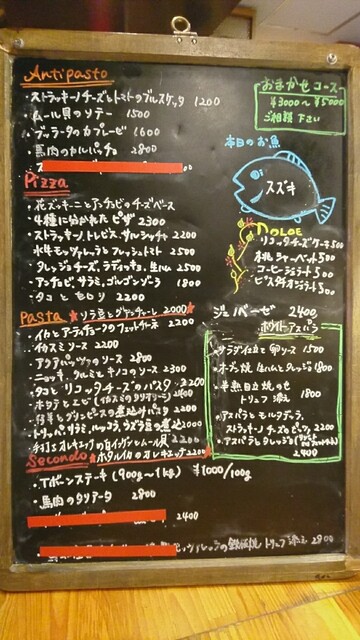 Antipasto
・ストラッキーノチーズとトマトのブルスケッタ 1200
・ムール貝のソテー 1500
・ブッラータのカプレーゼ 1600
・馬肉のカルパッチョ 2800
Pizza
・花ズッキーニとアンチョビのチーズベース
・4種に分かれたピザ 2300
・ストラッキーノ、トレビス、サルシッチャ 2200
・水牛モッツァレッラとフレッシュトマト 2500
・タレッジョチーズ、ラディッキョ、生ハム 2500
・アンチョビ、サラミ、ゴルゴンゾーラ 1800
・タコとセロリ 2200
Pasta
★ソラ豆とグアンチャーレ 2000★
・イカとアーティチョークのフェットチーネ 2200
・イカスミソース 2200
・アクアパッツァのソース 2800
・ニョッキ、タルミとキノコのソース 2300
・タコとリコッタチーズのパスタ 2200
・ホタテとエビ(イカスミのタリオリーニ) 2400
・仔羊とグリンピースの煮込み パスタ 2200
・トリッパ、サラミ、ルッコラ、ウズラ豆の煮込 2200
・手打ちオレキエッテの白インゲンとムール貝 2200
Secondo
★ホタルイカのオレキエッテ 2200
・Tボーンステーキ(900g〜1kg) ¥1000/100g
・馬肉のタリアータ 2800
2400
の鉄板焼 トリュフ添え 2800
おまかせコース
¥3000〜¥5000
ご相談下さい
本日のお魚
スズキ
DOLCE
リコッタチーズケーキ 500
桃シャーベット 500
コーヒージェラート 500
ピスタチオジェラート 500
ジェノベーゼ 2400
ホワイトアスパラ
サラダ仕立て 卵ソース 1500
・オーブン焼 生ハムとタレッジョ 1800
・半熟目玉焼のせ
トリュフ添え 1800
・アスパラとモルタデッラ、
ストラッキーノチーズのピッツァ 2200
・アスパラとタレッジョの
2400